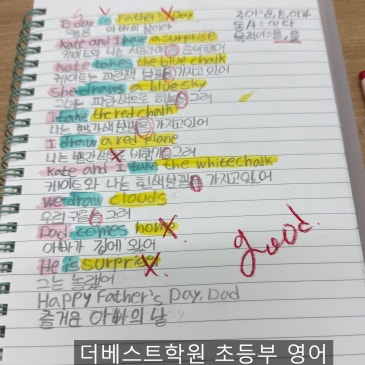 Today is Father's Day
오늘은 아빠의 날이다
주어=은,는,이,가
동사=~다
목적어=을,를
Kate and I have a surprise
케이트와 나는
Kate takes the blue chalk
케이트는 파란색 분필을 가지고있어
She draws a blue sky
그녀는 파란색으로 하늘을 그려
I take the red chalk
나는 빨간색 분필을 가지고있어
I draw a red plane
나는 빨간색 비행기를 그려
Kate and I take the white chalk
케이트와 나는 흰색 분필을 가지고있어
We draw clouds
우리 구름을 그려
Dad comes home
아빠가 집에 왔어
He is surprised
그는 놀랬어
good.
Happy Father's Day, Dad
즐거운 아빠의 날
더베스트학원 초등부 영어